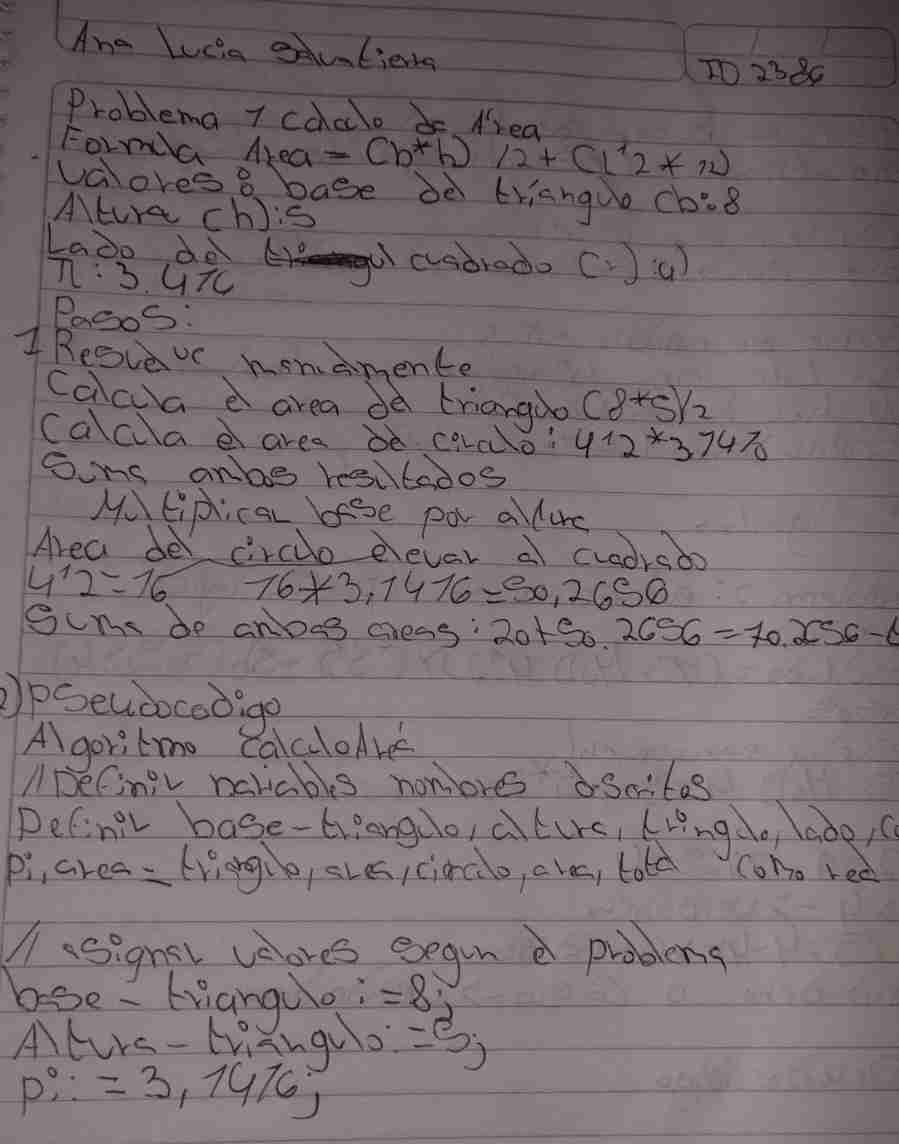 Ana Lucia Salvatierra
ID 2386
Problema 1 calculo de Area
Formula Area = (b*h) /2 + (L^2 * π)
Valores: base del triangulo (b: 8
Altura (h): 5
Lado del cuadrado ( ) : 4)
π: 3.1416
Pasos:
1 Resuelve manualmente
Calcula el area del triangulo (8*5)/2
Calcula el area de circulo: 4^2*3,1416
Suma ambos resultados
Multiplicar base por altura
Area del circulo elevar al cuadrado
4^2=16 16*3,1416=50,2656
Suma de ambas areas: 20+50.2656=70.2656-
2) Pseudocodigo
Algoritmo CalculoAre
//Definir variables nombres descritos
Definir base-triangulo, altura, tringulo, lado, c
pi, area-triangulo, area, circulo, area, total como real
// asignar valores segun el problema
base-triangulo:=8;
Altura-triangulo:=5;
pi:=3,1416;